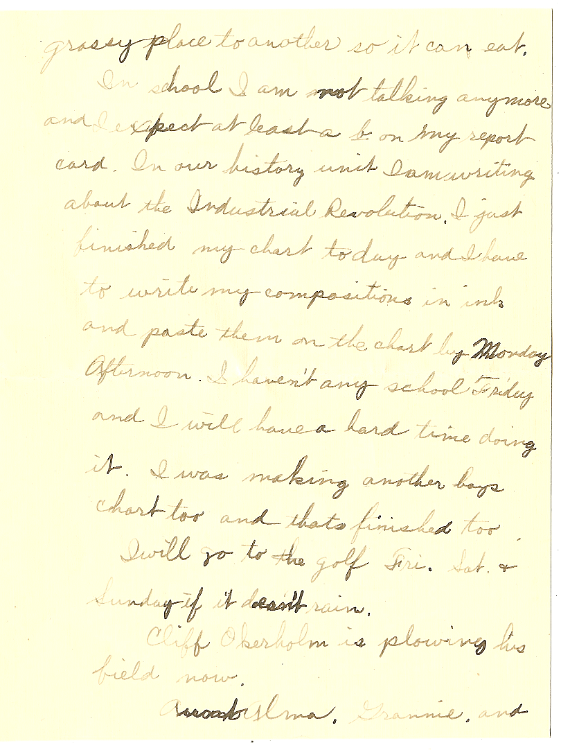 grassy place to another so it can eat.
In school I am not talking anymore
and I expect at least a b. on my report
card. In our history unit I am writing
about the Industrial Revolution. I just
finished my chart today and I have
to write my compositions in ink
and paste them on the chart by Monday
Afternoon. I haven't any school Friday
and I will have a hard time doing
it. I was making another boys
chart too and thats finished too.
I will go to the golf Fri. Sat. &
Sunday if it doesn't rain.
Cliff Okerholm is plowing his
field now.
Alma, Grannie, and